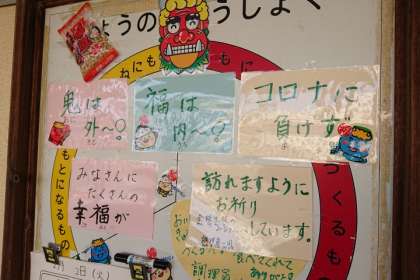 ょうの
うしょく
ねにも
にも
鬼は
外〜♀
福は
内〜♀
コロナに
負けず
みなさんに
たくさんの
幸福が
訪れますように
お祈り
しています。
もとになるもの
つくるもの
食べてくれて
調理員
ありがとう
3日(火)